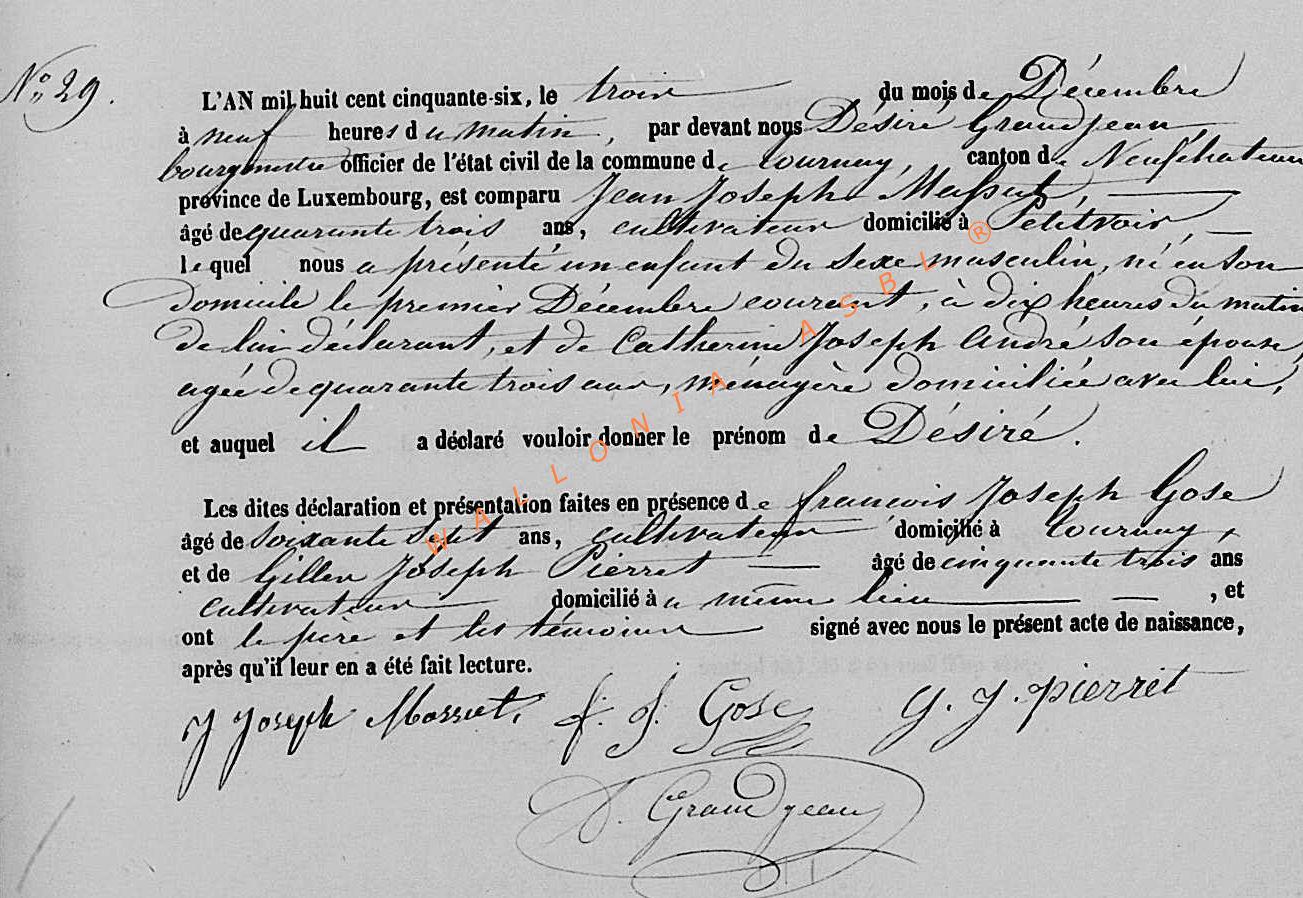 N° 29.
L'AN mil huit cent cinquante-six, le trois du mois de Décembre
à neuf heures du matin, par devant nous Désiré Grandjean,
bourgmestre officier de l'état civil de la commune de Tournay, canton de Neufchateau
province de Luxembourg, est comparu Jean Joseph Massut,
âgé de quarante trois ans, cultivateur domicilié à Petitvoir,
lequel nous a présenté un enfant du sexe masculin, né en son
domicile le premier Décembre courant, à dix heures du matin
de lui déclarant, et de Catherine Joseph André son épouse,
agée de quarante trois ans, ménagère domiciliée avec lui,
et auquel il a déclaré vouloir donner le prénom de Désiré.
Les dites déclaration et présentation faites en présence de françois Joseph Gose
âgé de soixante sept ans, cultivateur domicilié à Tournay,
et de Gilles Joseph Pierret âgé de cinquante trois ans
cultivateur domicilié à a même lieu, et
ont le père et les témoins signé avec nous le présent acte de naissance,
après qu'il leur en a été fait lecture.
J Joseph Massut. f. J. Gose G. J. pierret
D. Grandjean
WALLONIA ASBL ®